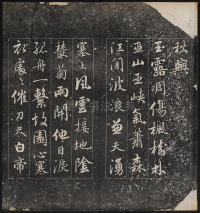 秋興
玉露凋傷楓樹林
巫山巫峽氣蕭森
江間波浪兼天湧
塞上風雲接地陰
叢菊兩開他日淚
孤舟一繫故園心寒
衣處々催刀尺白帝